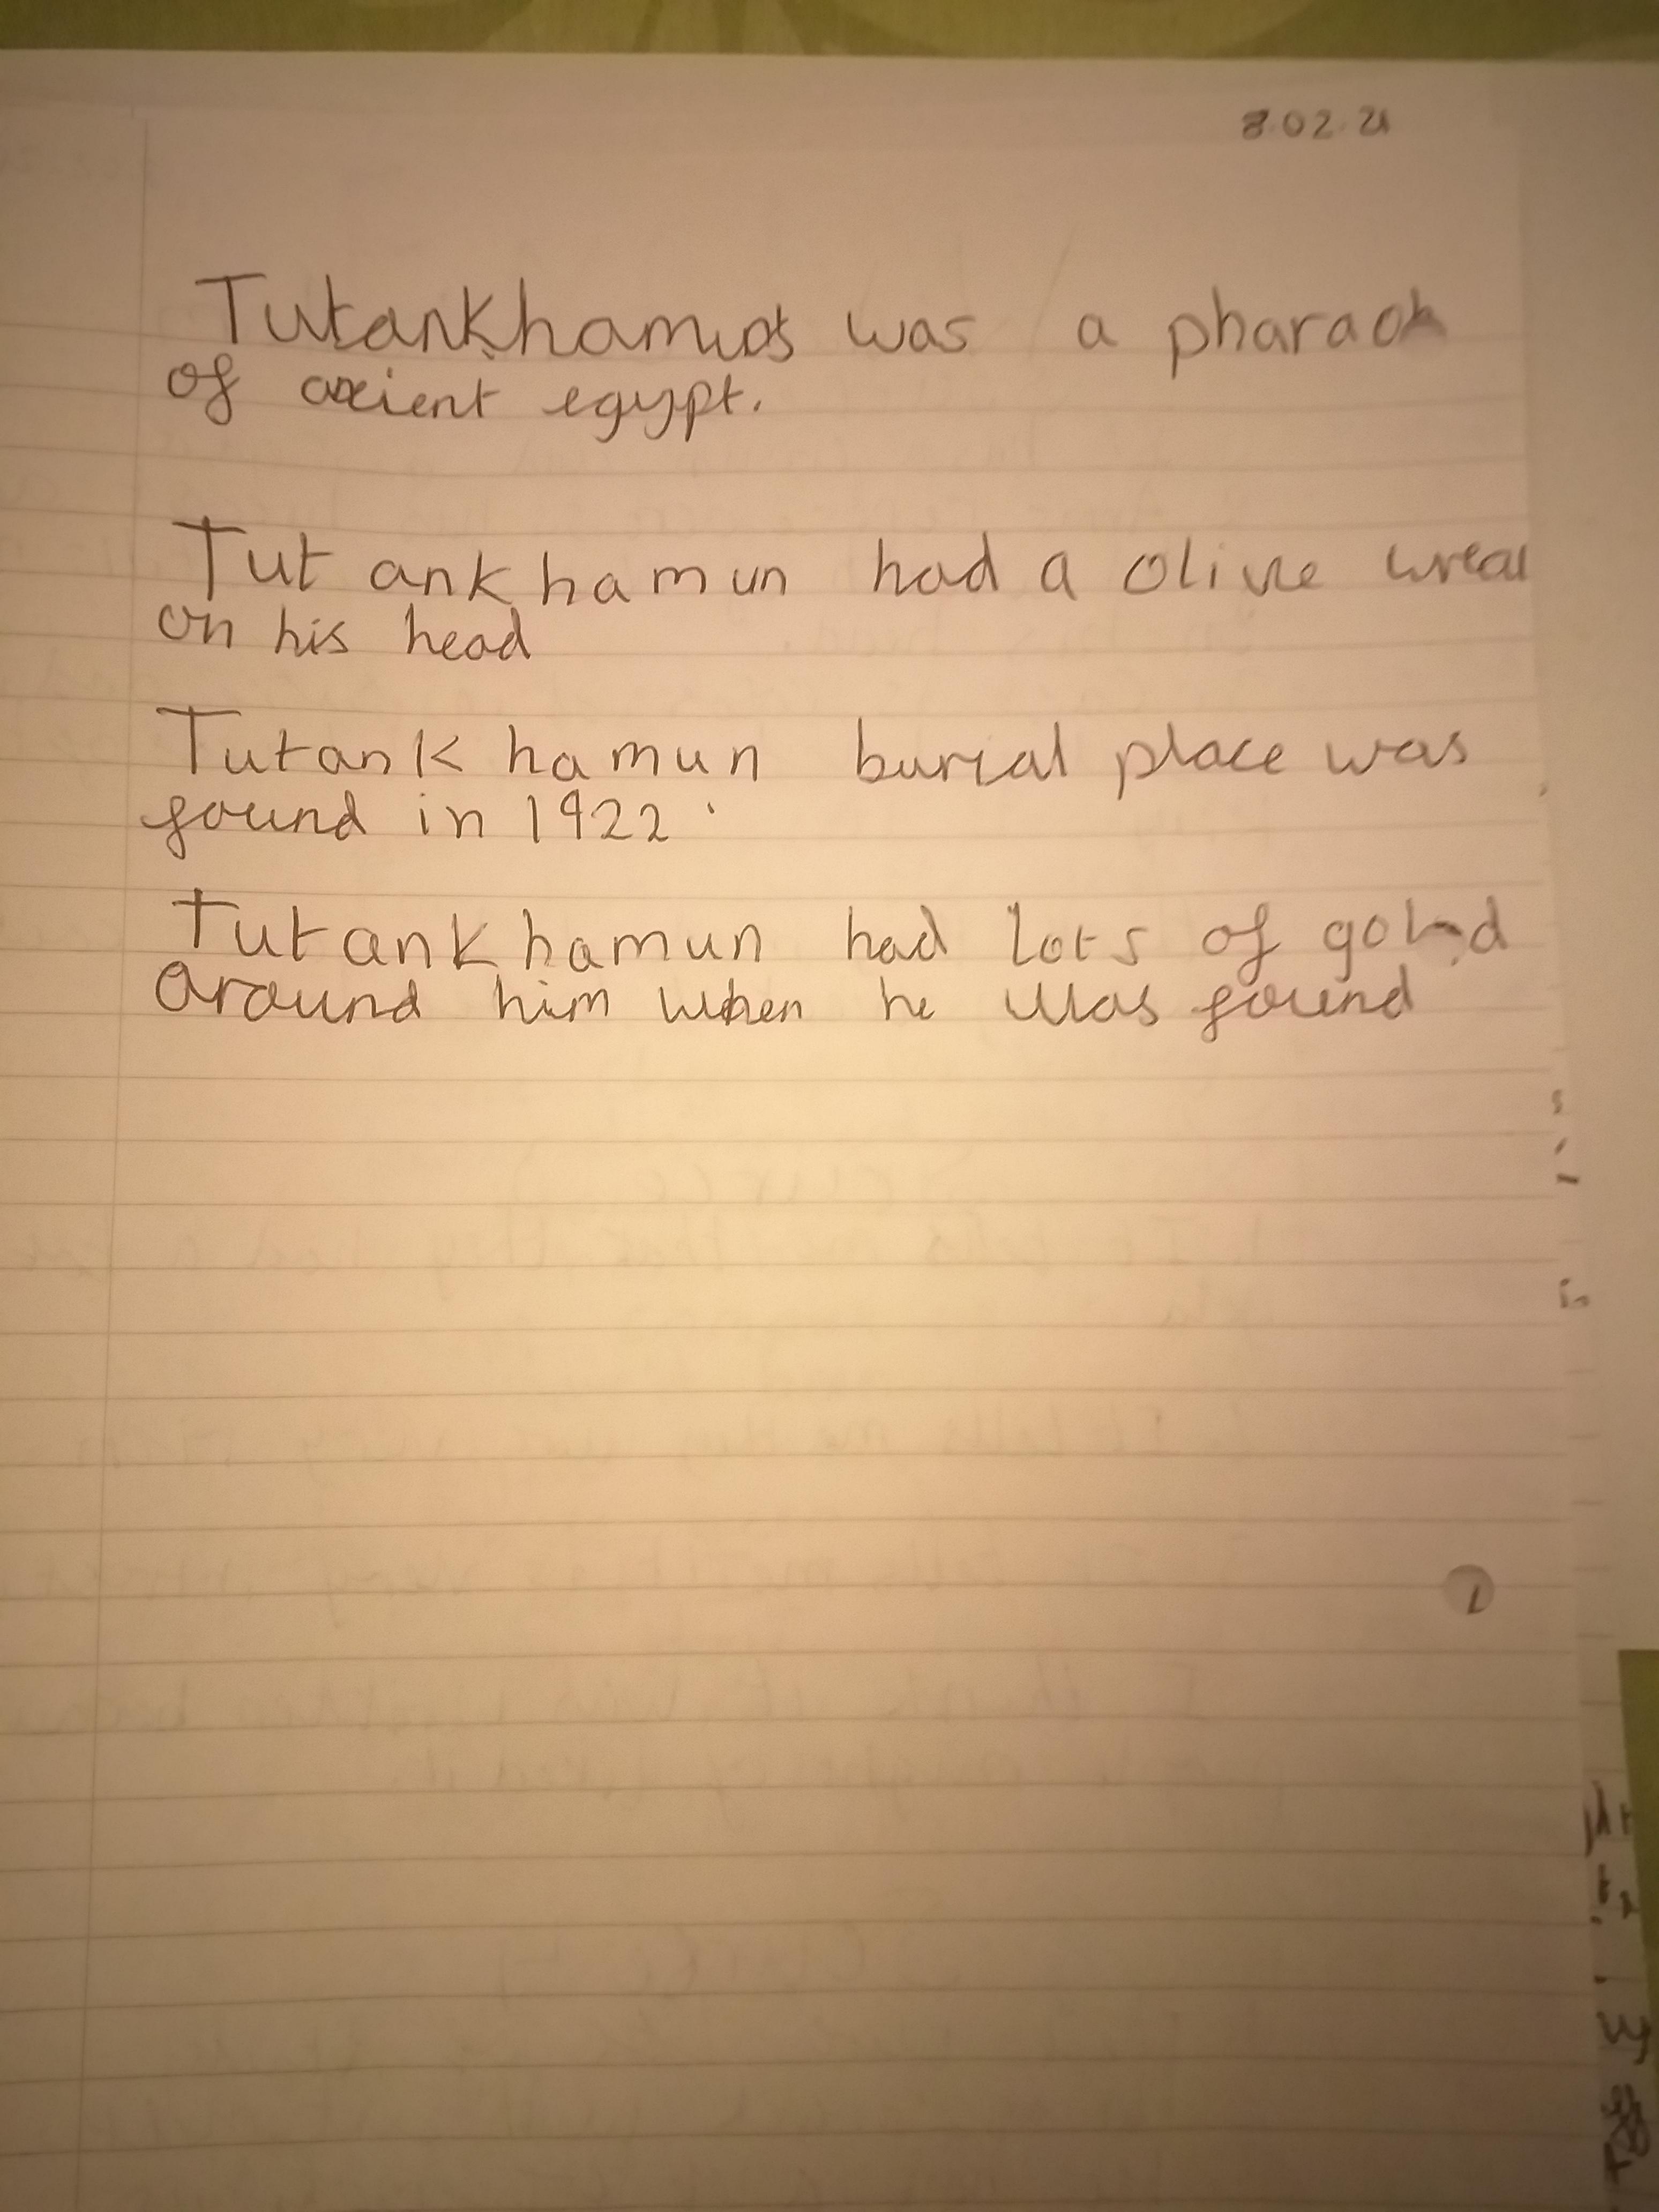 8.02.21
was a pharaoh
of egypt.
Tut ankhamun had a olive wreat
on his head
Tutankhamun burial place was
found in 1922.
Tutankhamun had lots of gold
around him when he was found
1